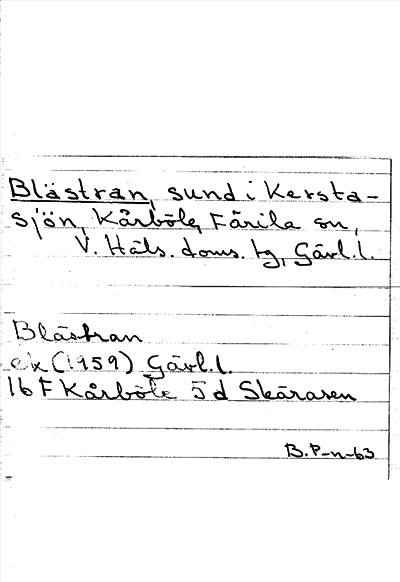 Blästran, sund i Kersta-
sjön, Kårböle, Färila sn,
V. Häls. doms. tg, Gävl.l.
Blästran
ek (1959) Gävl.l.
16 F Kårböle 5 d Skärasen
B.P-n-63